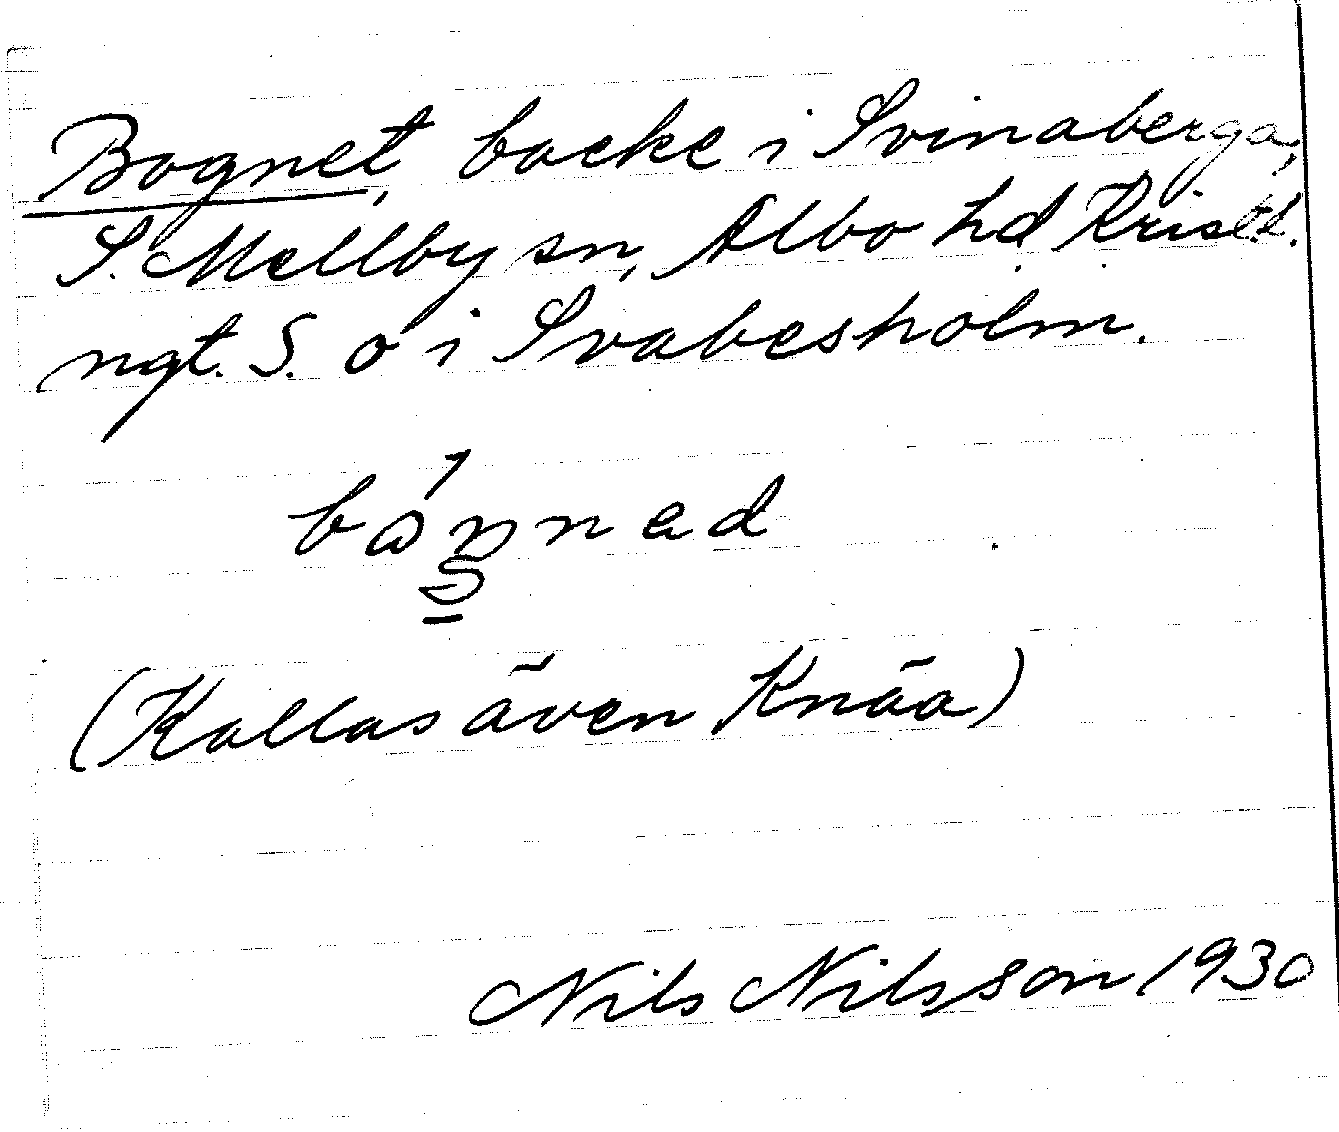 Bognet, backe i Svinaberga,
S. Mellby sn, Albo hd Kristd.
ngt. S. o i Svabesholm.
bȧŋnad
(Kallas även Knäa)
Nils Nilsson 1930